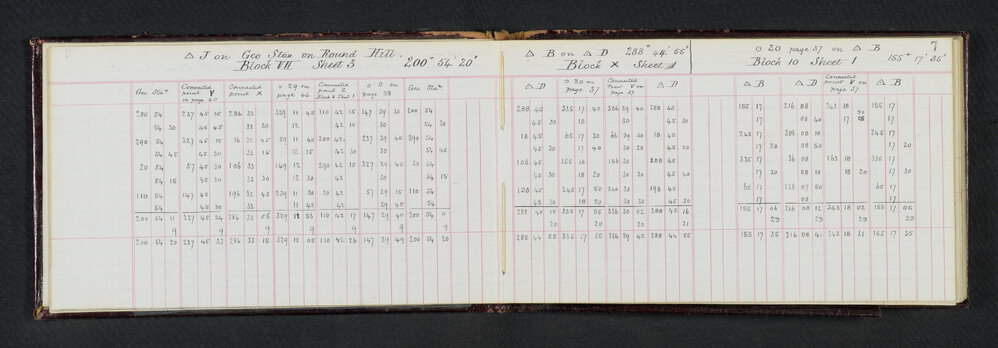 △ J on Geo Stan on Round Hill.
Block VII Sheet 3 200° 54' 20"
Geo Stan Connected point Y on page 40 Connected point X ⊙ 29 on page 44 Connected point Z Block X Sheet 1 ⊙ 0 on page 38 Geo Stan
200 54 237 45 15 286 33 329 11 45 110 42 15 147 29 30 200 54
54 30 45 45 33 30 12 42 15 30 54 30
290 54 327 45 15 16 33 45 59 11 45 200 42 237 29 45 290 54
54 45 45 30 33 15 12 15 42 30 30 54 45
20 54 57 45 30 106 33 149 12 290 42 15 327 29 40 20 54
54 15 45 30 33 30 12 30 42 30 54 15
110 54 147 45 196 32 45 239 11 30 20 42 57 29 15 110 54
54 45 30 33 11 45 42 29 45 54
200 54 11 237 45 24 286 33 06 329 11 56 110 42 17 147 29 40 200 54 11
9 9 9 9 9 9 9
200 54 20 237 45 33 286 33 15 329 12 05 110 42 26 147 29 49 200 54 20
△ B on △ D 288° 44' 55"
Block X Sheet 1
△ D ⊙ 20 on page 37 Connected Point V on page 37 △ D
288 45 335 17 40 336 29 40 288 45
45 30 18 30 45 30
18 45 65 17 30 66 29 30 18 45
45 30 17 40 30 20 45 20
108 45 155 18 156 30 108 45
45 30 18 20 30 20 45 40
198 45 245 17 50 246 30 198 45
45 30 18 20 30 30 45 30
288 45 15 335 17 55 336 30 02 288 45 16
20 20 20 21
288 44 55 335 17 35 336 29 42 288 44 55
⊙ 20 page 37 on △ B 7
Block 10 Sheet 1 155° 17' 35"
△ B △ D Connected point V on page 37 △ B
155 17 216 08 343 18 50 155 17
17 08 40 17 18 17
245 17 306 08 10 245 17
17 20 08 50 17 20
335 17 36 08 163 18 335 17
17 30 08 10 18 20 17 30
65 17 126 07 50 65 17
17 08 17
155 17 06 216 08 12 343 18 02 155 17 06
29 29 29 29
155 17 35 216 08 41 343 18 31 155 17 35